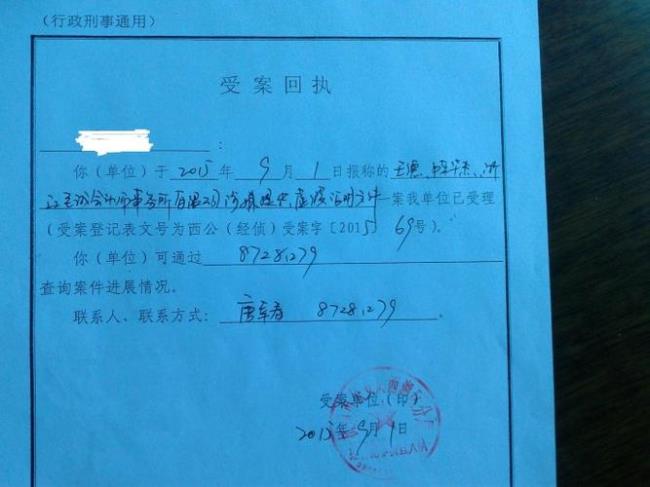 （行政刑事通用）
受案回执
：
你（单位）于 2015 年 9 月 1 日报称的
会计师事务所有限公司涉嫌提供虚假证明文件一案我单位已受理
（受案登记表文号为西公（经侦）受案字［2015］69号）。
你（单位）可通过 87281279
查询案件进展情况。
联系人、联系方式： 87281279 .
受案单位（印）
2015年9月1日